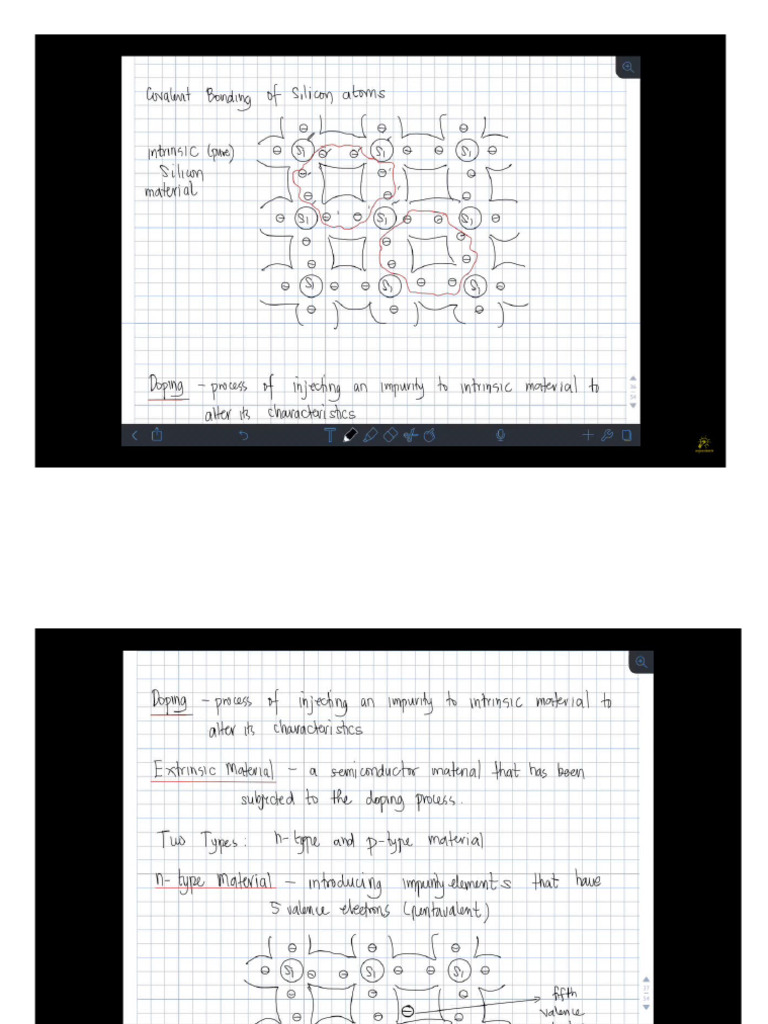 Covalent Bonding of Silicon atoms
intrinsic (pure)
Silicon
material
Si Si Si
Si Si Si
Si Si Si
Doping - process of injecting an impurity to intrinsic material to
alter its characteristics
Doping - process of injecting an impurity to intrinsic material to
alter its characteristics
Extrinsic Material - a semiconductor material that has been
subjected to the doping process.
Two Types: n-type and p-type material
n-type Material - introducing impurity elements that have
5 valence electrons (pentavalent)
Si Si Si
fifth
valence